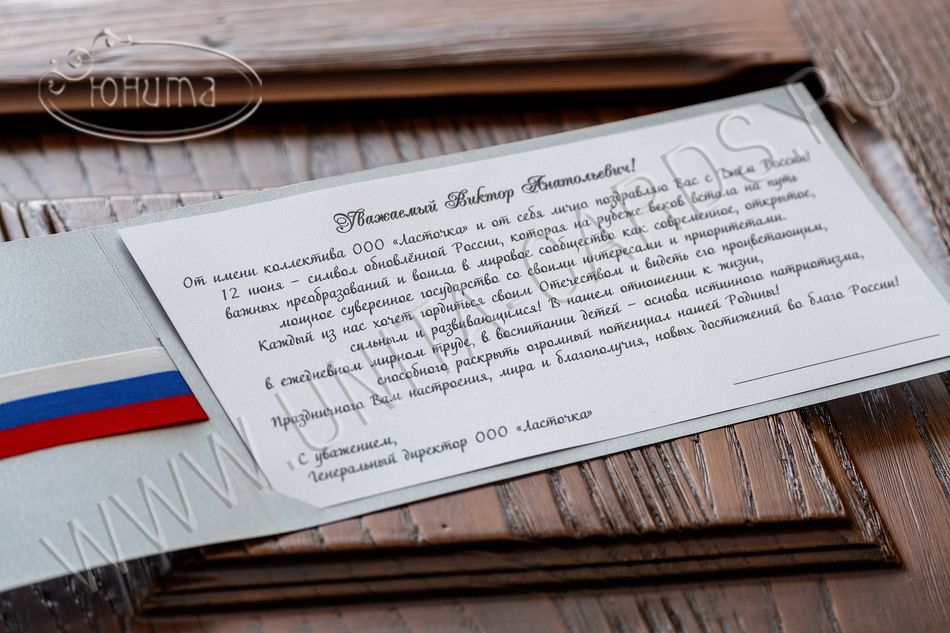 Юнита
Уважаемый Виктор Анатольевич!
От имени коллектива ООО «Ласточка» и от себя лично поздравляю Вас с Днём России!
12 июня – символ обновлённой России, которая на рубеже веков встала на путь
важных преобразований и вошла в мировое сообщество как современное, открытое,
мощное суверенное государство со своими интересами и приоритетами.
Каждый из нас хочет гордиться своим Отечеством и видеть его процветающим,
сильным и развивающимся! В нашем отношении к жизни,
в ежедневном мирном труде, в воспитании детей – основа истинного патриотизма,
способного раскрыть огромный потенциал нашей Родины!
Праздничного Вам настроения, мира и благополучия, новых достижений во благо России!
С уважением,
Генеральный директор ООО «Ласточка»
WWW.UNITA-CARDS.RU